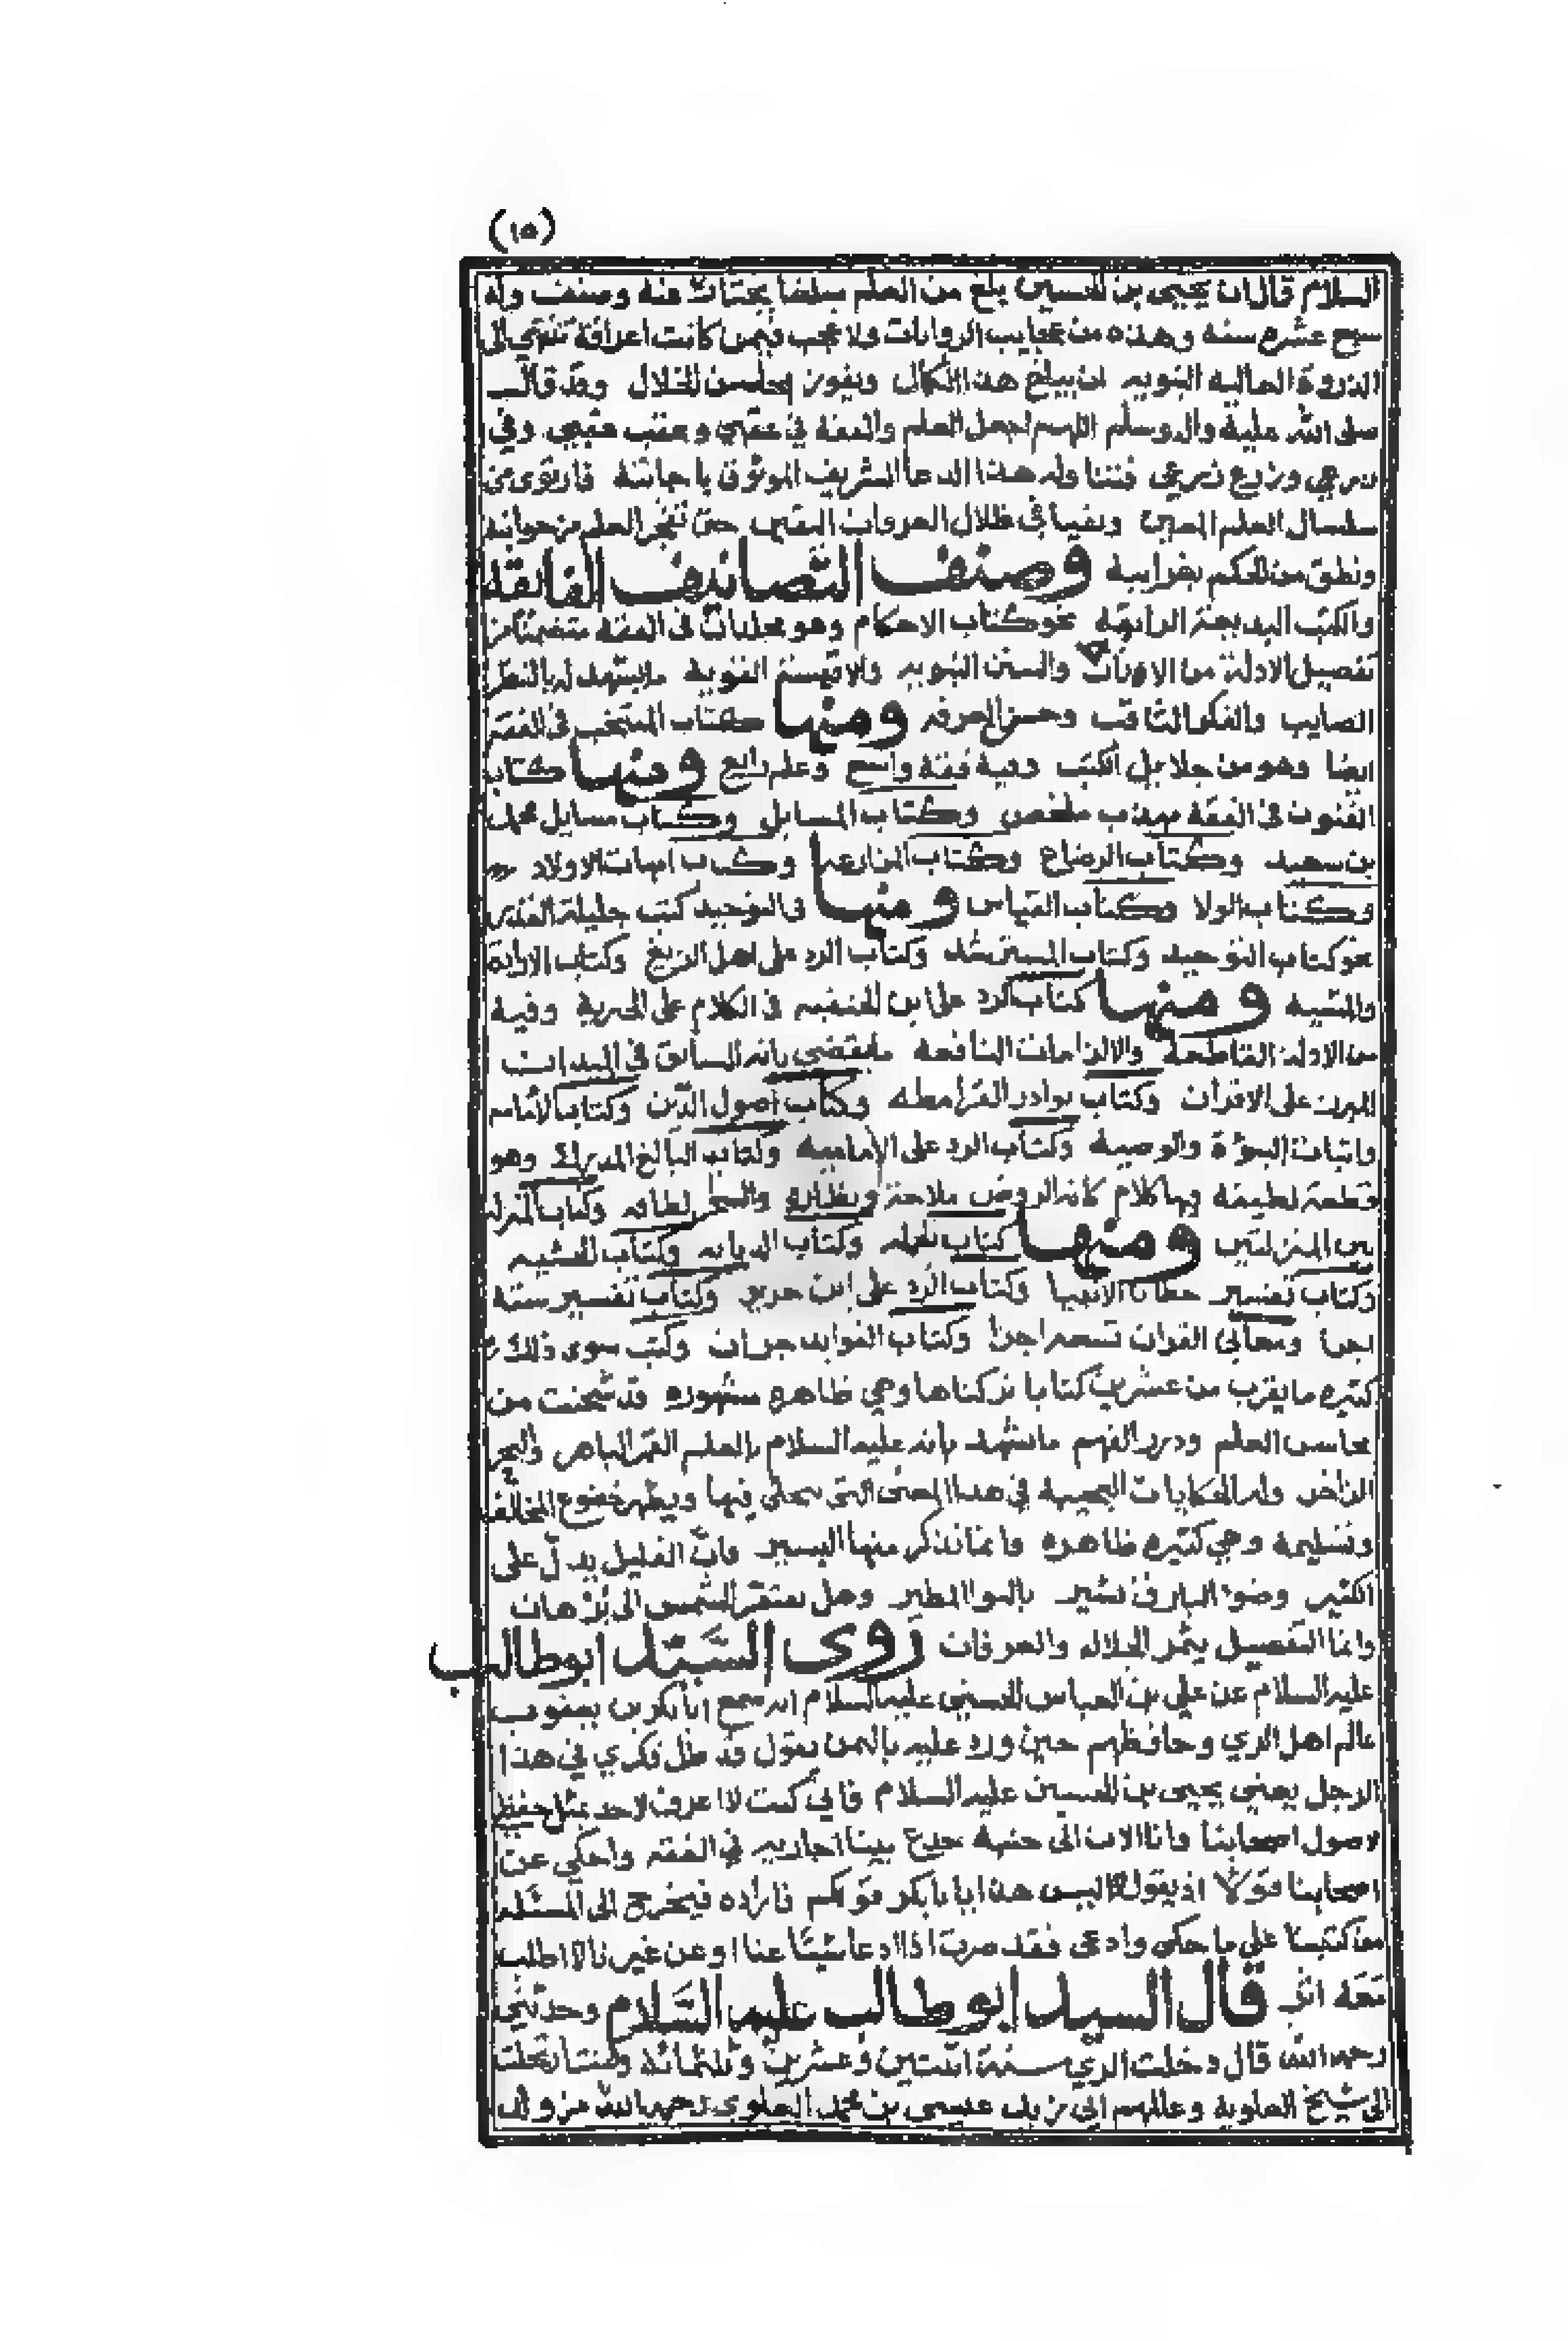 (١٥)
السلام قال ان يحيى بن الحسين بلغ من العلم مبلغا يختار عنه وصنف وله
سبع عشرة سنه وهذه من عجايب الروايات ولا عجب فيمن كانت اعراقه تنتهي الى
الذروة العاليه النبويه ان يبلغ هذا الكمال ويفوز باحسن الخلال وقد قال
صلى الله عليه واله وسلم اللهم اجعل العلم والفقه في عقبي وعقب عقبي وفي
زرعي وزرع زرعي فتناوله هذا الدعا الشريف الموثوق باجابته فارتوى من
سلسال العلم المعين وتفيا في ظلال العرفان حتى تفجر العلم من جوانبه
ونطق من الحكم بغرايبه وصنف التصانيف الفايقه
والكتب البديعة الرايقه نحو كتاب الاحكام وهو مجلدان في الفقه متضمنا من
تفصيل الادلة من الايات والسنن النبويه والاقيسة القويه ما يشهد له بالنظر
الصايب والفكر الثاقب وحسن المعرفه ومنها كتاب المنتخب في الفقه
ايضا وهو من جلايل الكتب وفيه فقه واسع وعلم رايع ومنها كتاب
الفنون في الفقه مهذب ملخص وكتاب المسايل وكتاب مسايل محمد
بن سعيد وكتاب الرضاع وكتاب المزارعه وكتاب امهات الاولاد
وكتاب الولا وكتاب القياس ومنها في التوحيد كتب جليلة القدر
نحو كتاب التوحيد وكتاب المسترشد وكتاب الرد على اهل الزيغ وكتاب الارادة
والمشيه ومنها كتاب الرد على ابن الحنفيه في الكلام على الجبرية وفيه
من الادلة القاطعة والالزامات النافعه ما يقضي بانه السابق في الميدان
المبرز على الاقران وكتاب بوادر القرامطه وكتاب اصول الدين وكتاب الامامه
واثبات النبوة والوصيه وكتاب الرد على الاماميه وكتاب البالغ المدرك وهو
قطعة لطيفه بها كلام كانه الروض ملاحة ونظاره والسحر لطافه وكتاب المنزله
بين المنزلتين ومنها كتاب الجمله وكتاب الديانه وكتاب الخشيه
وكتاب تفسير خطايا الانبيا وكتاب الرد على ابن جرير وكتاب تفسير ستة
اجزا ومعاني القران تسعه اجزا وكتاب الفوايد جزان وكتب سوى ذلك
كثيره ما يقرب من عشرين كتابا تركناها وهي ظاهره مشهوره قد شحنت من
محاسن العلم ودرر الفهم ما يشهد بانه عليه السلام بالعلم القمر الباهر والبحر
الزاخر وله الحكايات العجيبه في هذا المعنى التي تجلى فيها ويظهر خضوع المخالف
وتسليمه وهي كثيره ظاهره وانما نذكر منها اليسير وان القليل يدل على
الكثير وضوء البارق يشير بالنوا المطير وهل تفتقر الشمس الى برهان
وانما التفصيل يثمر الجلاله والعرفان روى السيد ابو طالب
عليه السلام عن علي بن العباس الحسني عليه السلام انه سمع ابا بكر بن يعقوب
عالم اهل الري وحافظهم حين ورد عليه باليمن يقول قد ظل فكري في هذا
الرجل يعني يحيى بن الحسين عليه السلام فاني كنت لا اعرف لاحد مثل حفظي
لاصول اصحابنا وانا الان الى جنبه جذع بينا اجاريه في الفقه واحكي عن
اصحابنا قولا اذ يقول ليس هذا يا ابا بكر قولكم فاراده فيخرج الى المسئله
من كتبنا على ما حكى وادعى فقد صرت اذا ادعا شيئا عنا او عن غيرنا لا اطلب
معه اثر قال السيد ابو طالب عليه السلام وحدثني
رحمه الله قال دخلت الري سنة اثنتين وعشرين وثلثمائة وكنتا دخلت
الى شيخ العلويه وعالمهم ابي زيد عيسى بن محمد العلوي رحمه الله من ولد